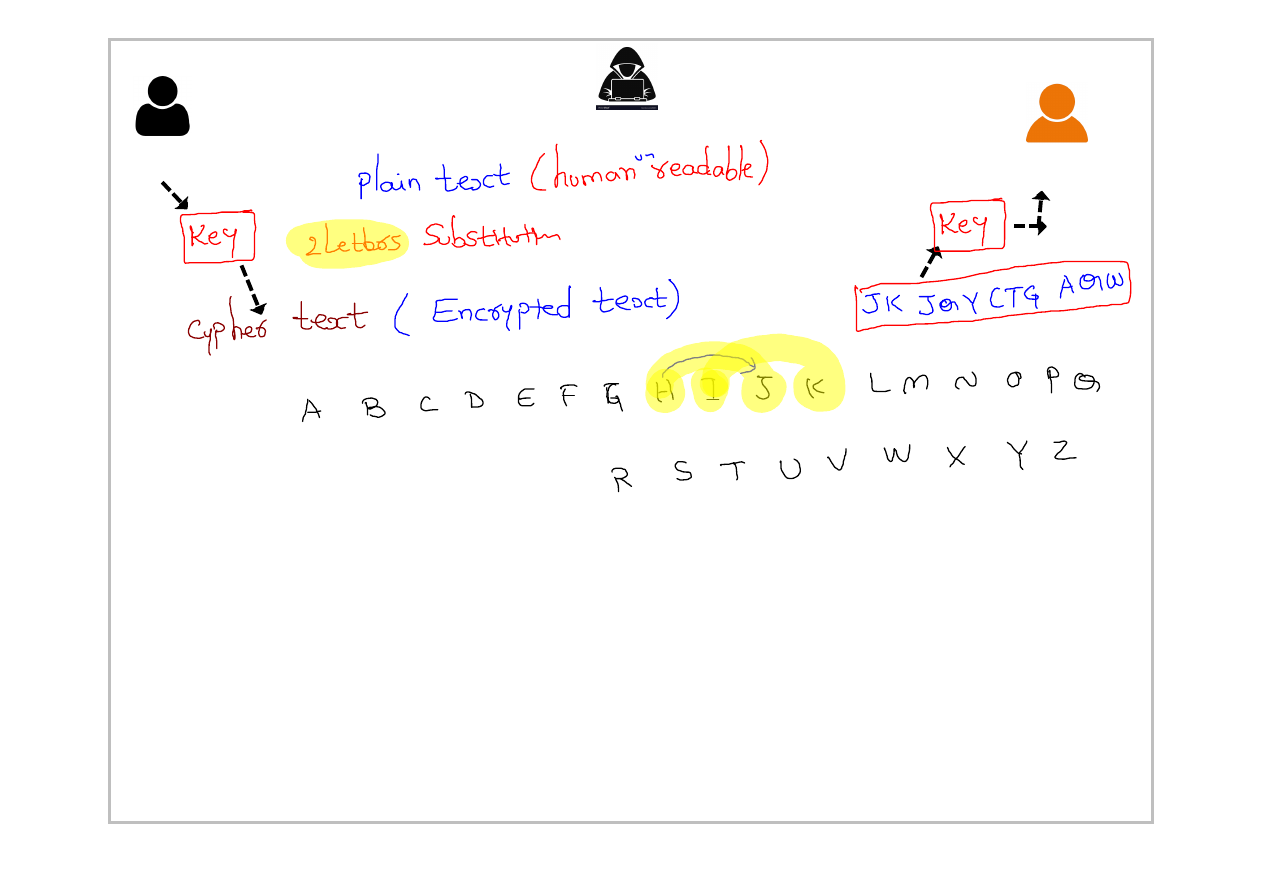 plain text (human un readable)
Key
2 Letters Substitution
Key
cypher text ( Encrypted text)
JK JQY CTG AQW
A B C D E F G H I J K L M N O P Q
R S T U V W X Y Z